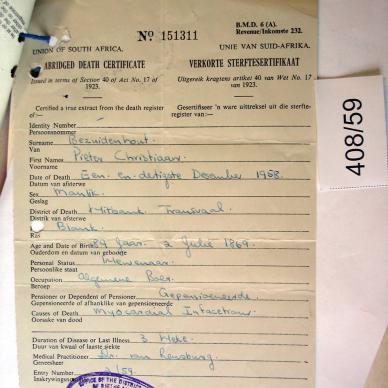 B.M.D. 6 (A).
Revenue/Inkomste 232.
No 151311
UNION OF SOUTH AFRICA.
UNIE VAN SUID-AFRIKA.
ABRIDGED DEATH CERTIFICATE
VERKORTE STERFTESERTIFIKAAT
Issued in terms of Section 40 of Act No. 17 of 1923.
Uitgereik kragtens artikel 40 van Wet No. 17 van 1923.
Certified a true extract from the death register of:—
Gesertifiseer 'n ware uittreksel uit die sterfte-register van:—
Identity Number
Persoonsnommer
Surname Bezuidenhout
Van
First Names Pieter Christiaan
Voorname
Date of Death Een-en-dertigste Desember 1958.
Datum van afsterwe
Sex Manlik
Geslag
District of Death Witbank Transvaal
Distrik van afsterwe
Blank
Ras
Age and Date of Birth 89 Jaar. 2 Julie 1869.
Ouderdom en datum van geboorte
Personal Status Wewenaar
Persoonlike staat
Occupation Algemene Boer.
Beroep
Pensioner or Dependent of Pensioner Gepensioeneerde.
Gepensioeneerde of afhanklike van gepensioeneerde
Causes of Death Myocardial
Oorsake van dood
Duration of Disease or Last Illness 3 Weke
Duur van kwaal of laaste siekte
Medical Practitioner Dr. van Rensburg
Geneesheer
Entry No. /59.
Inskrywings
OFFICE OF THE DISTRICT
408/59